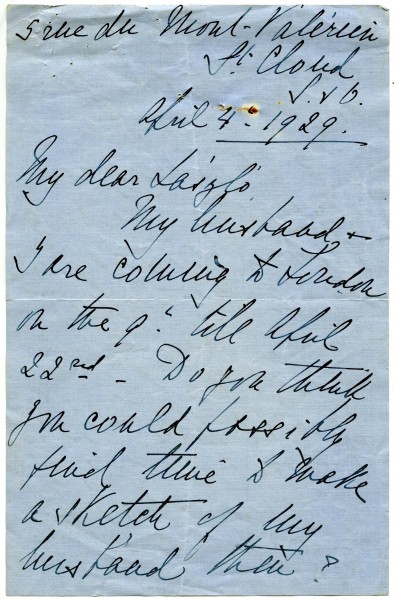 5 rue du Mont-Valérien
St. Cloud
S. & O.
April 4 - 1929.
My dear László
My husband &
I are coming to London
on the 9th till April
22nd - Do you think
you could possibly
find time to make
a sketch of my
husband then?